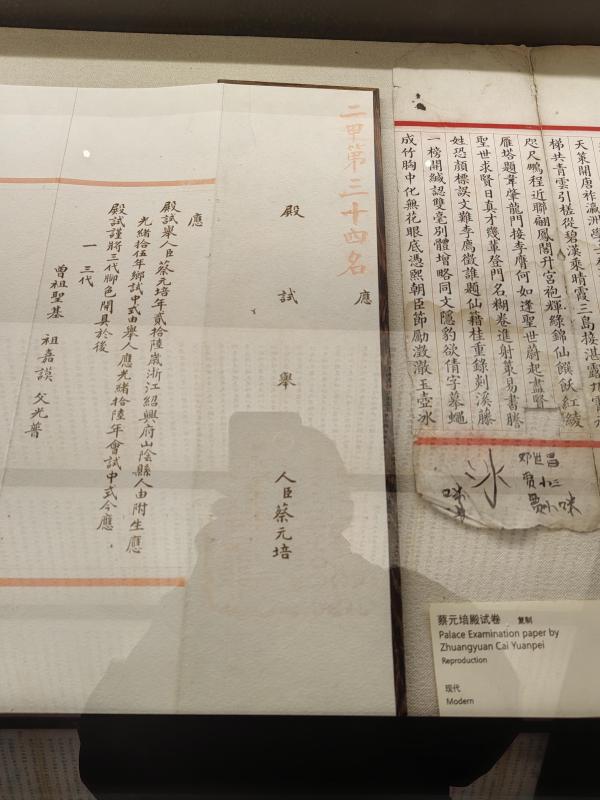 天策開唐祚瀛洲學
梯共青雲引槎從碧漢乘晴霞三島接湛露九霄
咫尺鵬程近聯翩鳳閣升宮袍輝綠錦仙饌飫紅綾
雁塔題韋肇龍門接李膺何如逢聖世蔚起盡賢
聖世求賢日真才幾輩登門名糊卷進射策易書謄
姓恐顏標誤文難李廌徵誰題仙籍桂重錄剡溪藤
一榜開緘認雙毫列體增略同文隱豹欲倩字摹蠅
成竹胸中化無花眼底憑熙朝臣節勵澂澈玉壺冰
冰
邓世昌
咪
二甲第三十四名
應
殿試舉人臣蔡元培
應
殿試舉人臣蔡元培年貳拾陸歲浙江紹興府山陰縣人由附生應
光緒拾伍年鄉試中式由舉人應光緒拾陸年會試中式今應
殿試謹將三代腳色開具於後
一三代
曾祖聖基 祖嘉謨 父光普
蔡元培殿试卷 复制
Palace Examination paper by
Zhuangyuan Cai Yuanpei
Reproduction
现代
Modern